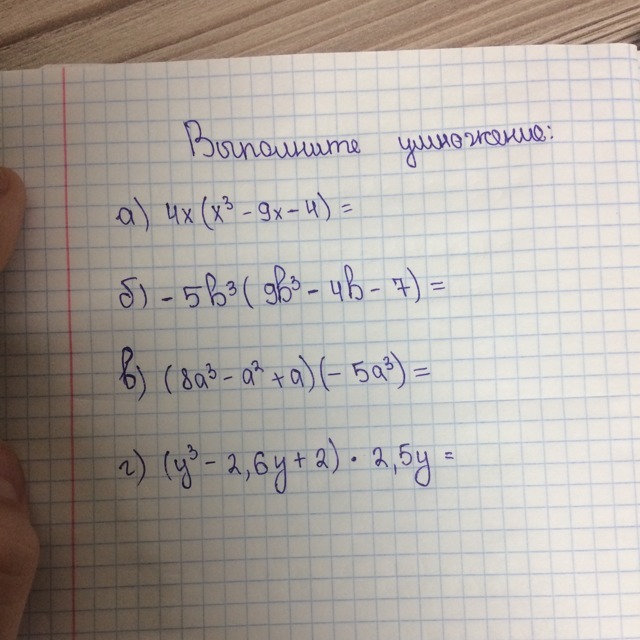 Выполните умножение:
а) 4x(x³ - 9x - 4) =
б) - 5b³(9b³ - 4b - 7) =
в) (8a³ - a² + a)(- 5a³) =
г) (y³ - 2,6y + 2) · 2,5y =